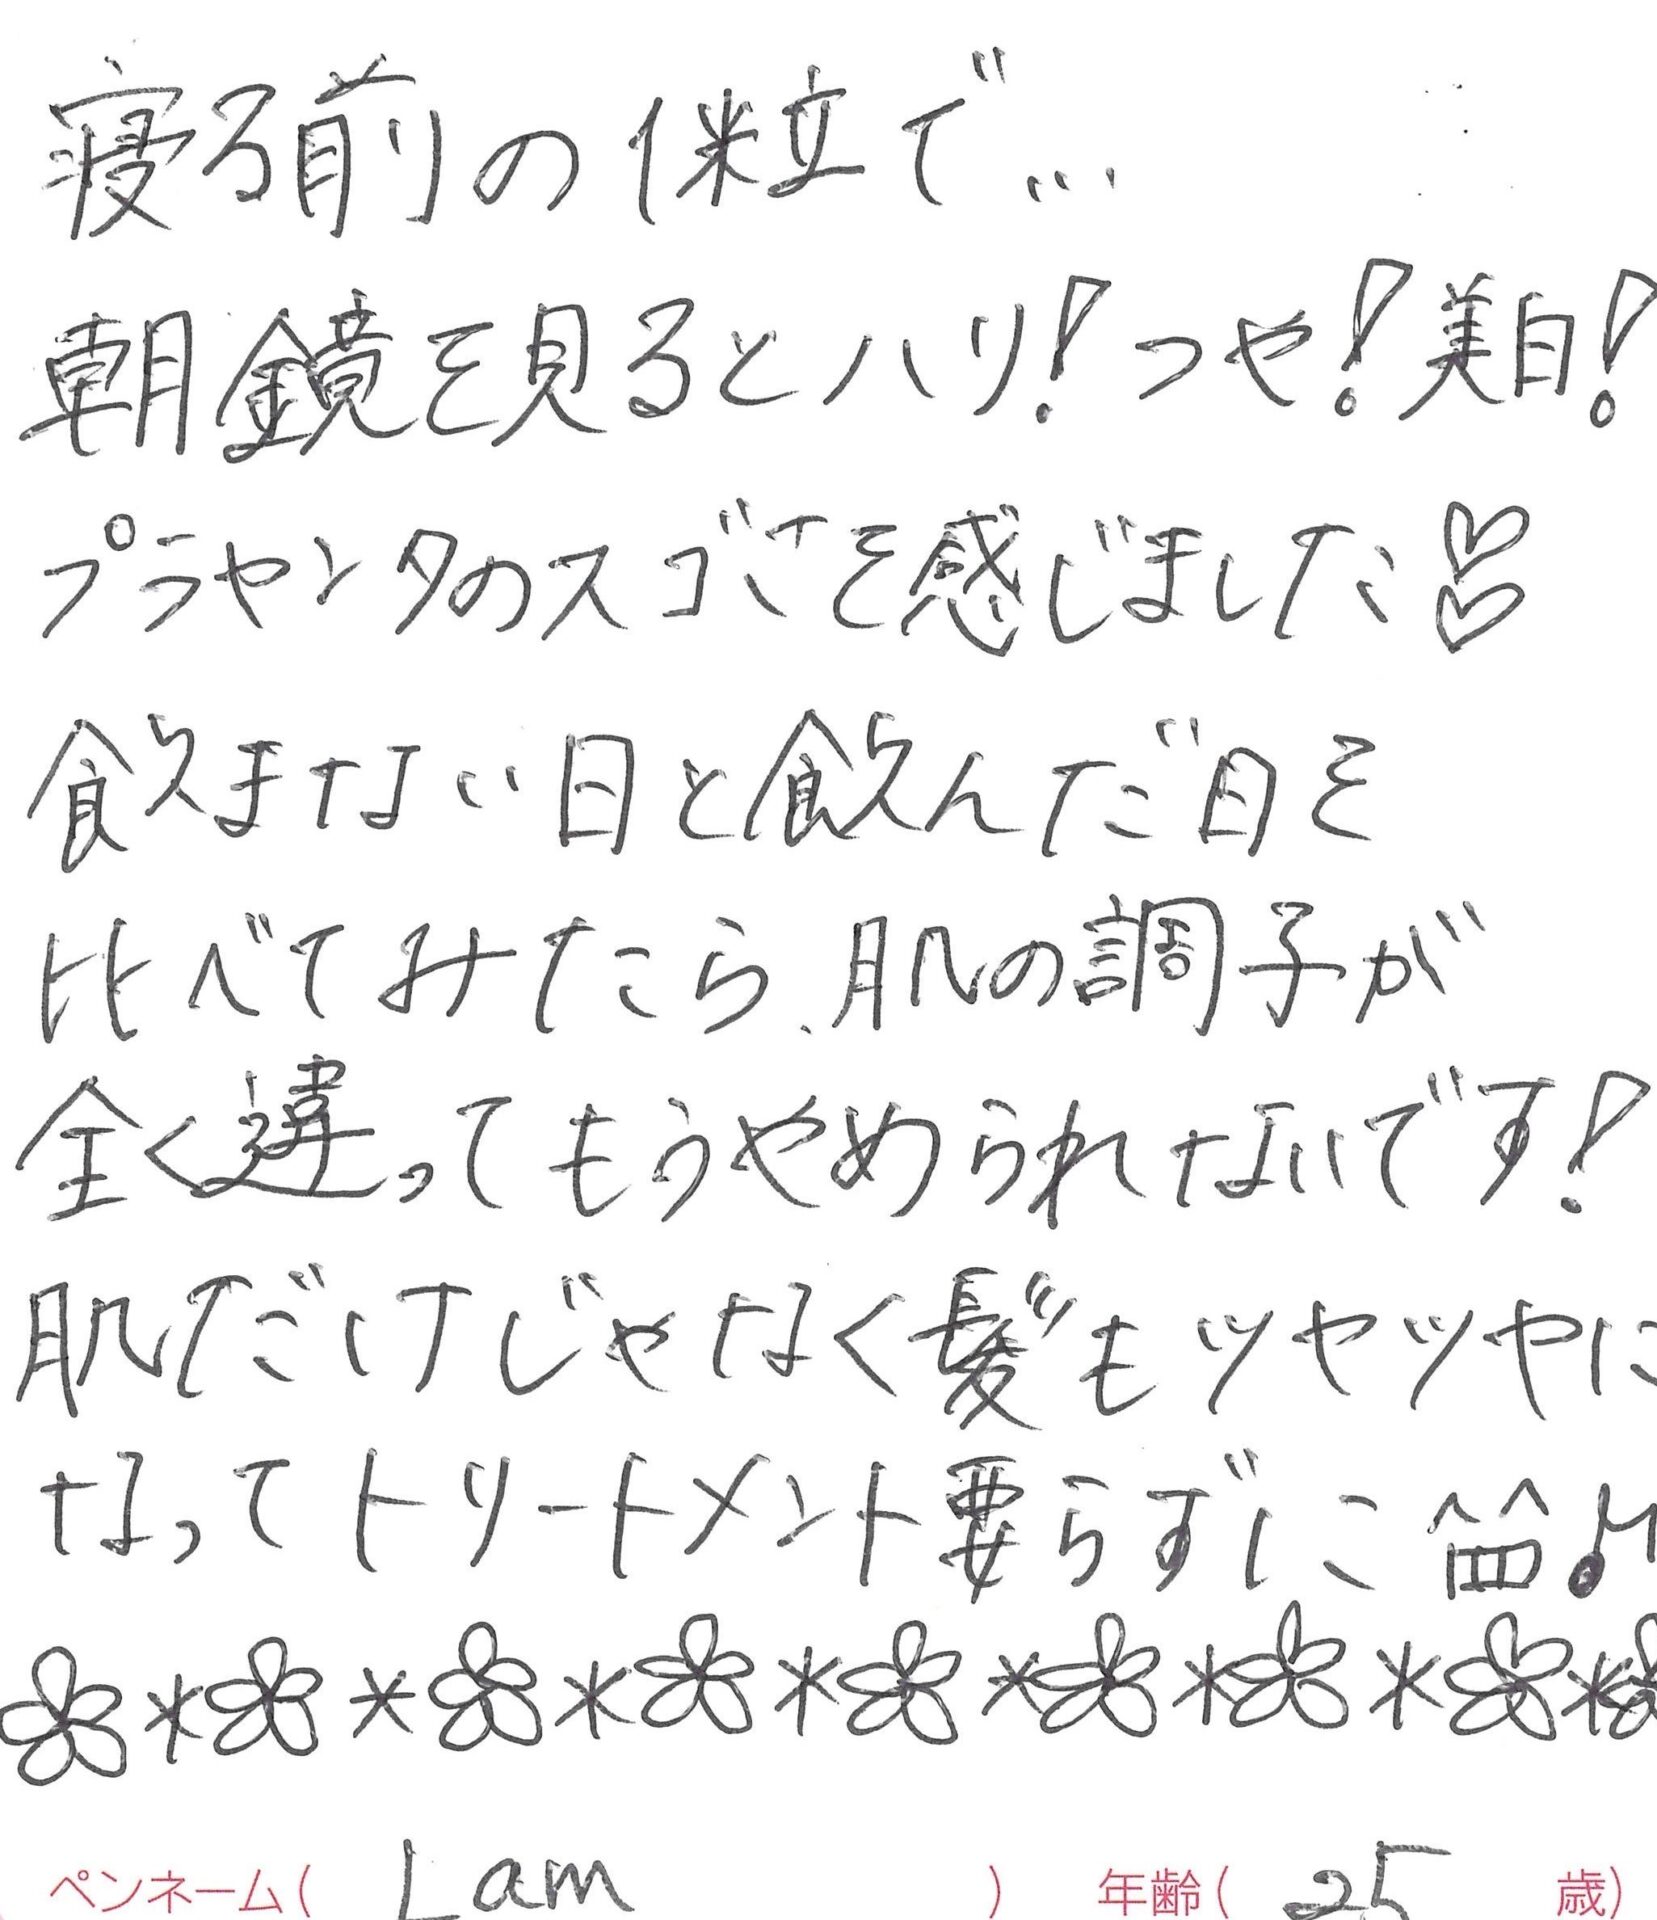 寝る前の1粒で…
朝鏡を見るとハリ!つや!美白!
プラセンタのスゴさを感じました♡♡
飲まない日と飲んだ日を
比べてみたら、肌の調子が
全く違ってもうやめられないです!
肌だけじゃなく髪もツヤツヤに
なってトリートメント要らずに♪
ペンネーム( Lam ) 年齢( 25 歳)